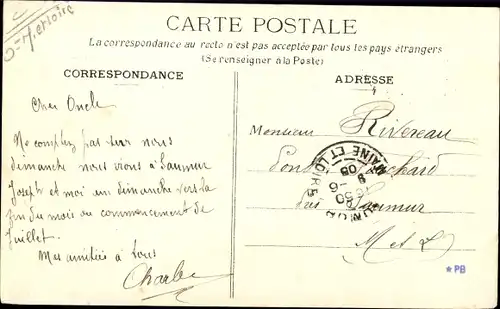 CARTE POSTALE
La correspondance au recto n'est pas acceptée par tous les pays étrangers
(Se renseigner à la Poste)
CORRESPONDANCE
ADRESSE
Cher Oncle
Ne comptez pas sur nous
dimanche nous irons à Saumur
Joseph et moi un dimanche vers la
fin du mois ou commencement de
Juillet.
Mes amitiés à tous
Charles
Monsieur Rivereau
Pont
Saumur
M et L
MAINE ET LOIRE
*PB